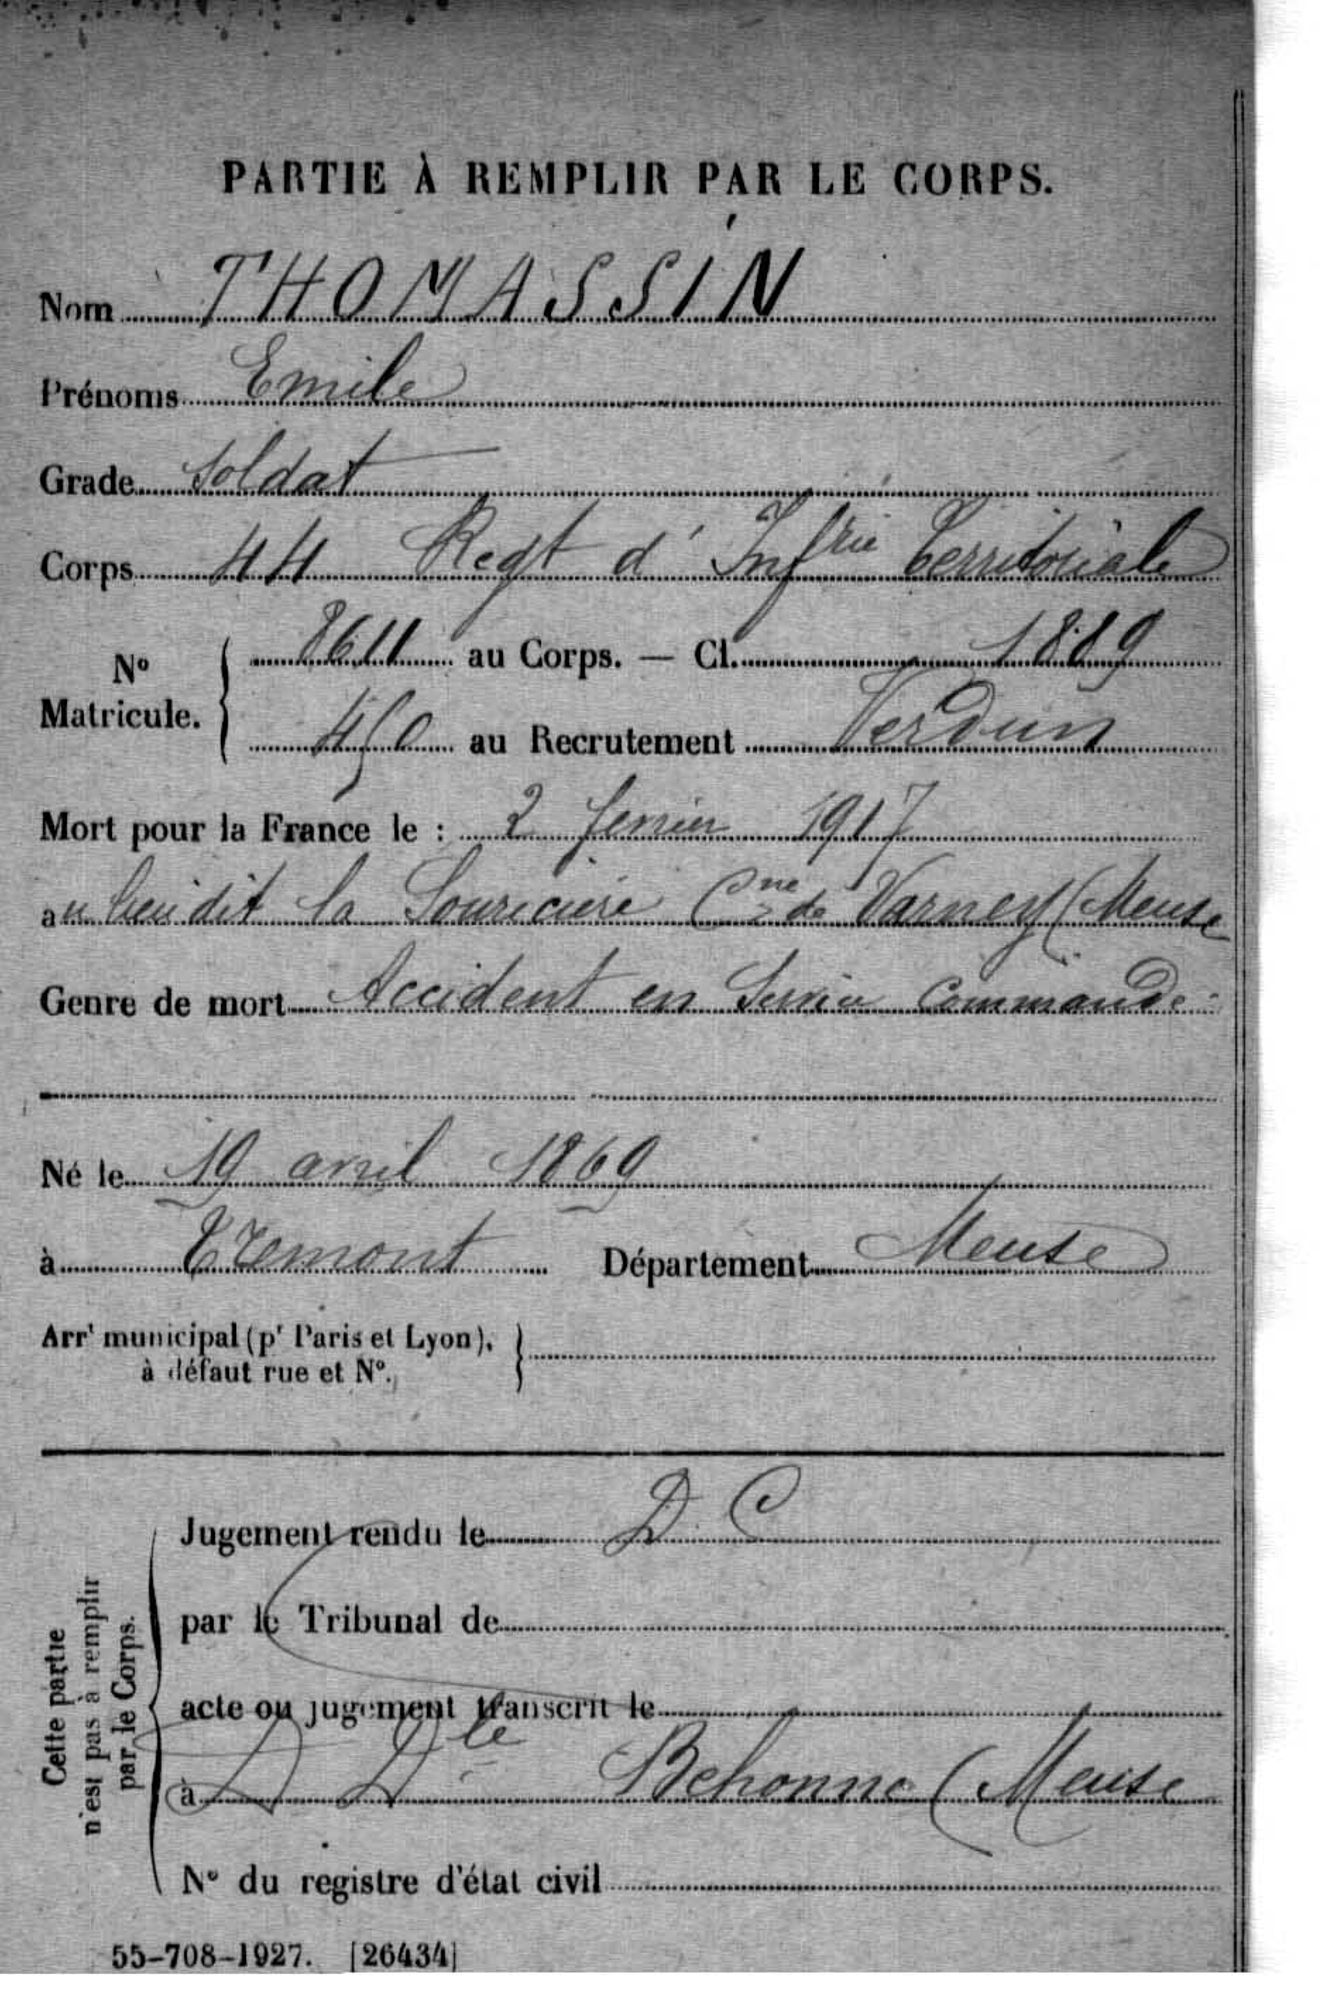 PARTIE À REMPLIR PAR LE CORPS.
Nom THOMASSIN
Prénoms Emile
Grade Soldat
Corps 44 Regt d' Infrie Territoriale
No Matricule. 8611 au Corps. — Cl. 1889
450 au Recrutement Verdun
Mort pour la France le : 2 fevrier 1917
au lieu dit la Souricière Cne de Varney (Meuse
Genre de mort Accident en Service Commandé
Né le 19 avril 1869
à Tremont Département Meuse
Arrt municipal (pr Paris et Lyon),
à défaut rue et No.
Cette partie
n'est pas à remplir
par le Corps.
Jugement rendu le D. C
par le Tribunal de
acte ou jugement transcrit le
à D Dle Behonne (Meuse
No du registre d'état civil
55-708-1927. [26434]